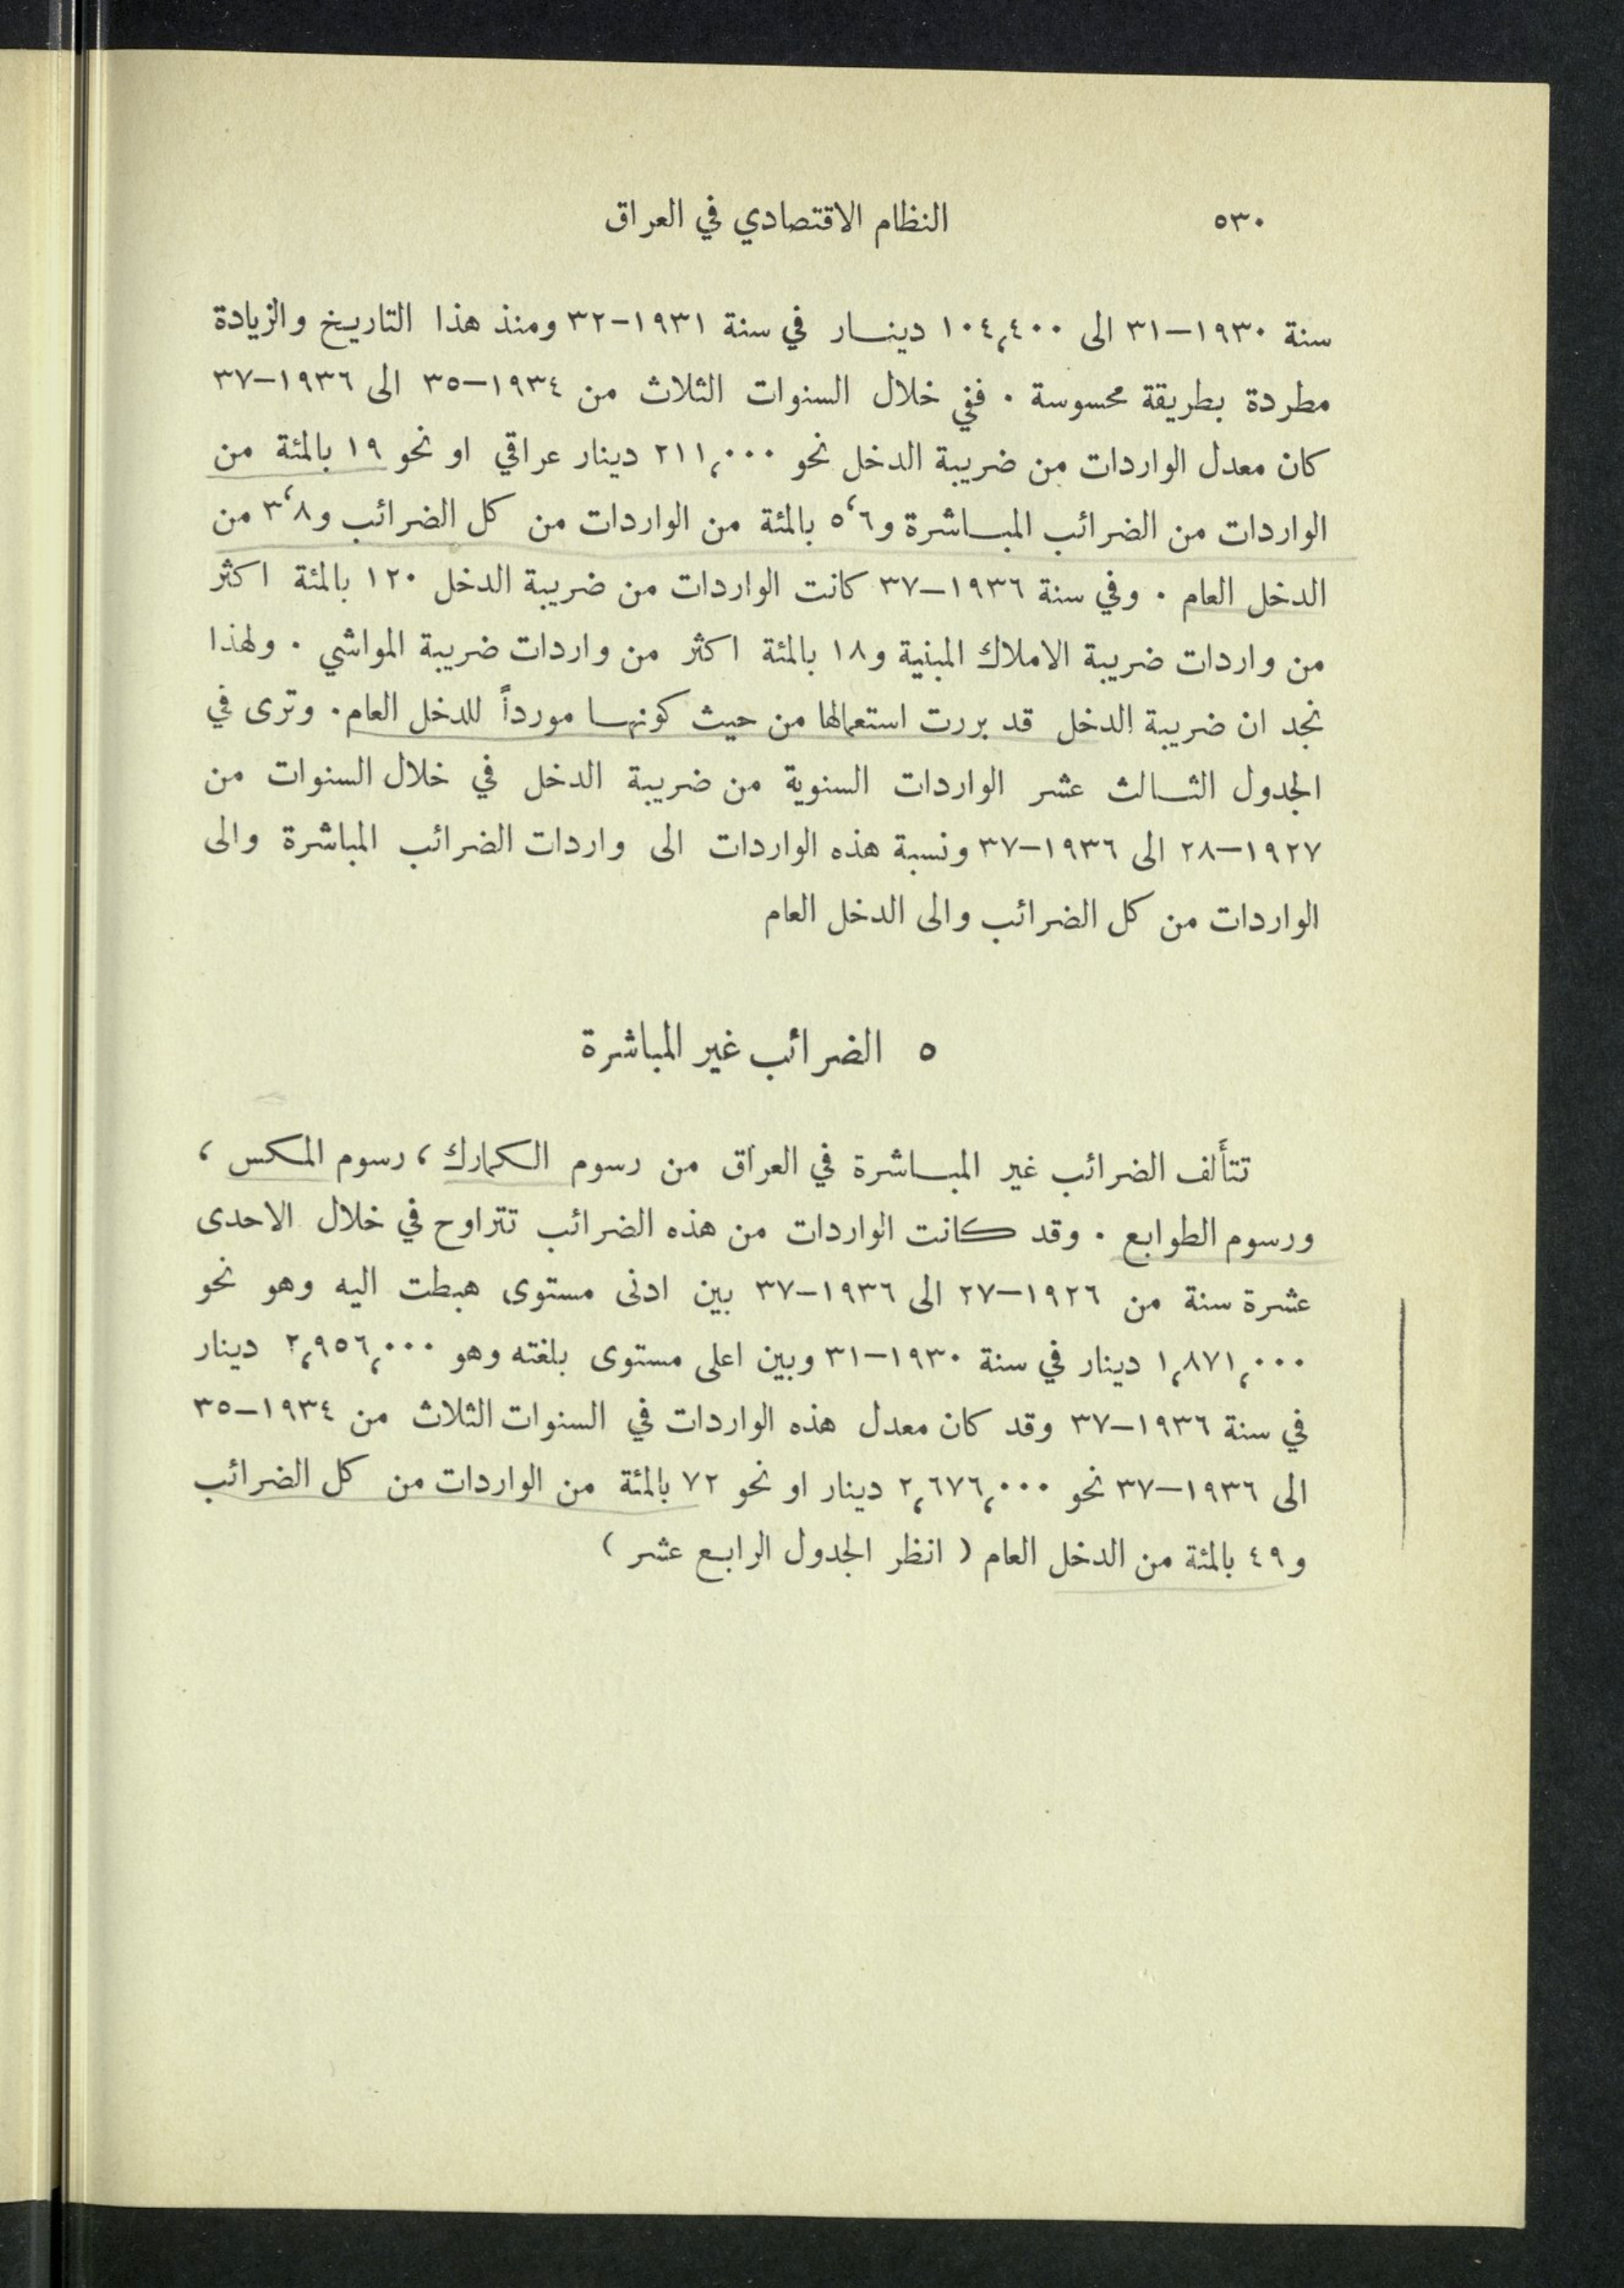 ٥٣٠ النظام الاقتصادي في العراق
سنة ١٩٣٠–٣١ الى ١٠٤،٤٠٠ دينار في سنة ١٩٣١–٣٢ ومنذ هذا التاريخ والزيادة
مطردة بطريقة محسوسة . ففي خلال السنوات الثلاث من ١٩٣٤–٣٥ الى ١٩٣٦–٣٧
كان معدل الواردات من ضريبة الدخل نحو ٢١١،٠٠٠ دينار عراقي او نحو ١٩ بالمئة من
الواردات من الضرائب المباشرة و٥،٦ بالمئة من الواردات من كل الضرائب و٣،٨ من
الدخل العام . وفي سنة ١٩٣٦–٣٧ كانت الواردات من ضريبة الدخل ١٢٠ بالمئة اكثر
من واردات ضريبة الاملاك المبنية و١٨ بالمئة اكثر من واردات ضريبة المواشي . ولهذا
نجد ان ضريبة الدخل قد بررت استعمالها من حيث كونها مورداً للدخل العام . وترى في
الجدول الثالث عشر الواردات السنوية من ضريبة الدخل في خلال السنوات من
١٩٢٧–٢٨ الى ١٩٣٦–٣٧ ونسبة هذه الواردات الى واردات الضرائب المباشرة والى
الواردات من كل الضرائب والى الدخل العام
٥ الضرائب غير المباشرة
تتألف الضرائب غير المباشرة في العراق من رسوم الكمارك ، رسوم المكس ،
ورسوم الطوابع . وقد كانت الواردات من هذه الضرائب تتراوح في خلال الاحدى
عشرة سنة من ١٩٢٦–٢٧ الى ١٩٣٦–٣٧ بين ادنى مستوى هبطت اليه وهو نحو
١،٨٧١،٠٠٠ دينار في سنة ١٩٣٠–٣١ وبين اعلى مستوى بلغته وهو ٢،٩٥٦،٠٠٠ دينار
في سنة ١٩٣٦–٣٧ وقد كان معدل هذه الواردات في السنوات الثلاث من ١٩٣٤–٣٥
الى ١٩٣٦–٣٧ نحو ٢،٦٧٦،٠٠٠ دينار او نحو ٧٢ بالمئة من الواردات من كل الضرائب
و٤٩ بالمئة من الدخل العام ( انظر الجدول الرابع عشر )